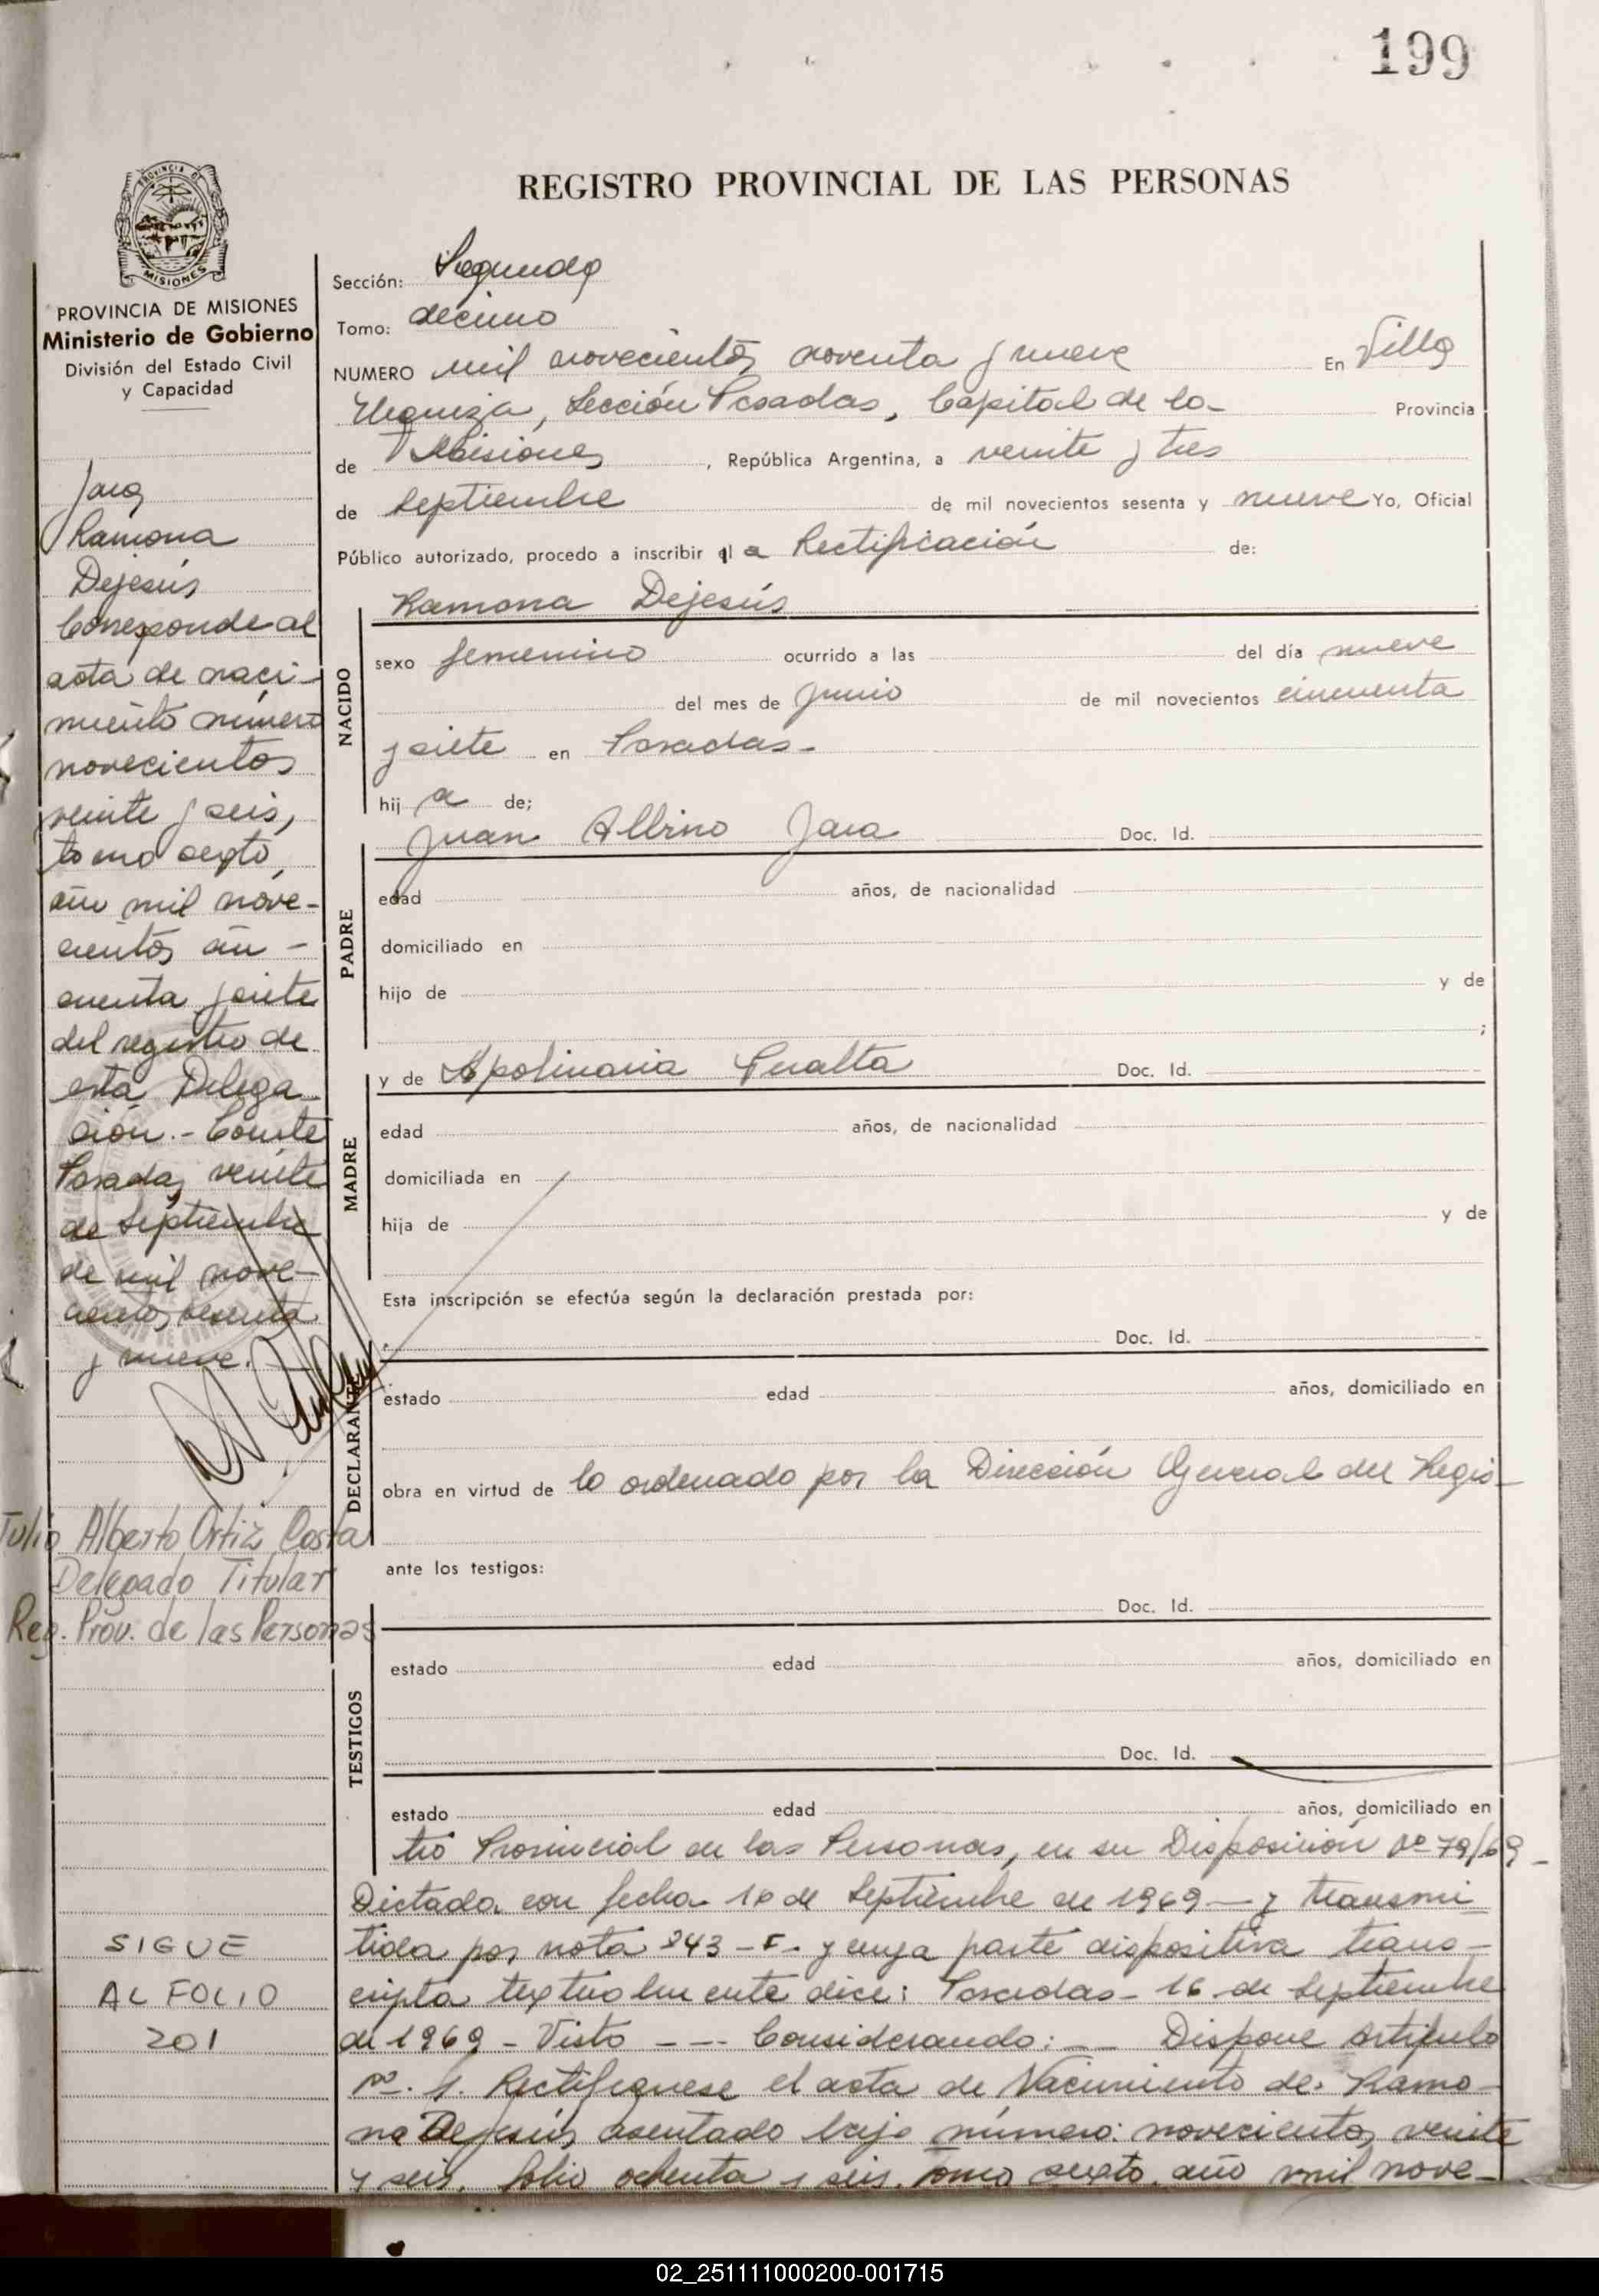 199
REGISTRO PROVINCIAL DE LAS PERSONAS
PROVINCIA DE
MISIONES
PROVINCIA DE MISIONES
Ministerio de Gobierno
División del Estado Civil
y Capacidad
Jara
Ramona
Dejesús
Corresponde al
acta de naci-
miento número
novecientos
veinte y seis,
tomo sexto,
año mil nove-
cientos cin-
cuenta y siete
del registro de
esta Delega-
ción.- Conste
Posadas, veinte
de Septiembre
de mil nove-
cientos sesenta
y nueve.
Tulio Alberto Ortiz Costa
Delegado Titular
Reg. Prov. de las Personas
SIGUE
AL FOLIO
201
Sección: Segunda
Tomo: décimo
NUMERO mil novecientos noventa y nueve En Villa
Urquiza, Sección Posadas, Capital de la- Provincia
de Misiones, República Argentina, a veinte y tres
de Septiembre de mil novecientos sesenta y nueve Yo, Oficial
Público autorizado, procedo a inscribir el a Rectificación de:
NACIDO
Ramona Dejesús
sexo femenino ocurrido a las del día nueve
del mes de Junio de mil novecientos cincuenta
y siete en Posadas-
hij a de;
PADRE
Juan Albino Jara Doc. Id.
edad años, de nacionalidad
domiciliado en
hijo de y de
;
MADRE
y de Apolinaria Peralta Doc. Id.
edad años, de nacionalidad
domiciliada en
hija de y de
Esta inscripción se efectúa según la declaración prestada por:
DECLARANTE
Doc. Id.
estado edad años, domiciliado en
obra en virtud de lo ordenado por la Dirección General del Regis-
ante los testigos:
TESTIGOS
Doc. Id.
estado edad años, domiciliado en
Doc. Id.
estado edad años, domiciliado en
tro Provincial de las Personas, en su Disposición Nº 79/69-
Dictada con fecha 16 de Septiembre de 1969 - y transmi-
tida por nota 243 - F - y cuya parte dispositiva trans-
cripta textualmente dice: Posadas- 16 de Septiembre
de 1969 - Visto - -- Considerando: - - Dispone Artículo
nº. 1. Rectifiquese el acta de Nacimiento de: Ramo-
na Dejesús, asentado bajo número: novecientos veinte
y seis, folio ochenta y seis, Tomo sexto, año mil nove-
02_251111000200-001715